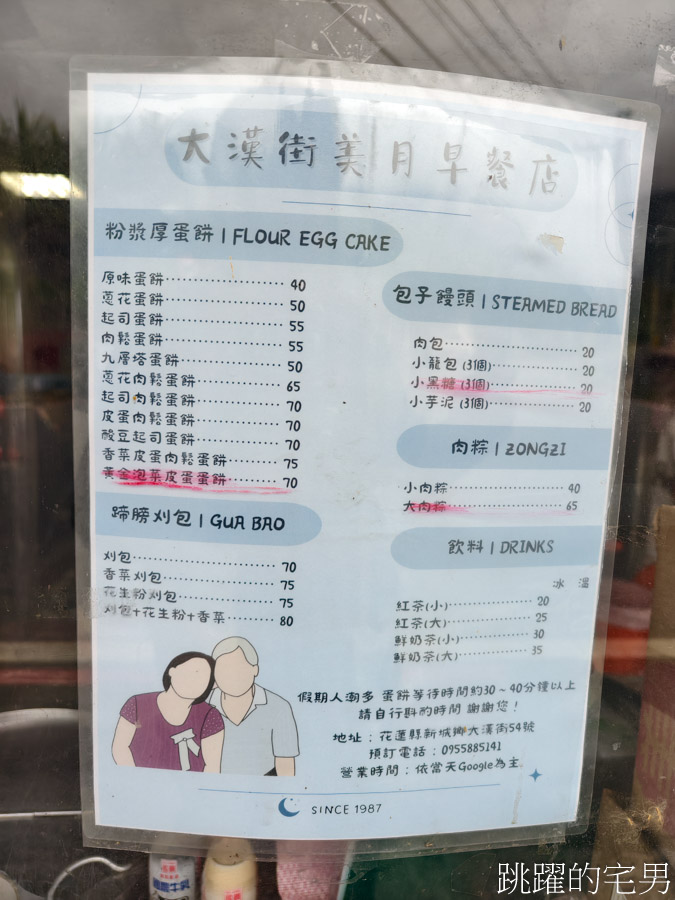 大漢街美月早餐店
粉漿厚蛋餅 | FLOUR EGG CAKE
原味蛋餅 40
蔥花蛋餅 50
起司蛋餅 55
肉鬆蛋餅 55
九層塔蛋餅 50
蔥花肉鬆蛋餅 65
起司肉鬆蛋餅 70
皮蛋肉鬆蛋餅 70
酸豆起司蛋餅 70
香菜皮蛋肉鬆蛋餅 75
黃金泡菜皮蛋蛋餅 70
蹄膀刈包 | GUA BAO
刈包 70
香菜刈包 75
花生粉刈包 75
刈包+花生粉+香菜 80
包子饅頭 | STEAMED BREAD
肉包 20
小籠包 (3個) 20
小黑糖 (3個) 20
小芋泥 (3個) 20
肉粽 | ZONGZI
小肉粽 40
大肉粽 65
飲料 | DRINKS
冰 溫
紅茶(小) 20
紅茶(大) 25
鮮奶茶(小) 30
鮮奶茶(大) 35
假期人潮多 蛋餅等待時間約30～40分鐘以上
請自行斟酌時間 謝謝您！
地址：花蓮縣新城鄉大漢街54號
預訂電話：0955885141
營業時間：依當天Google為主
SINCE 1987
跳躍的宅男